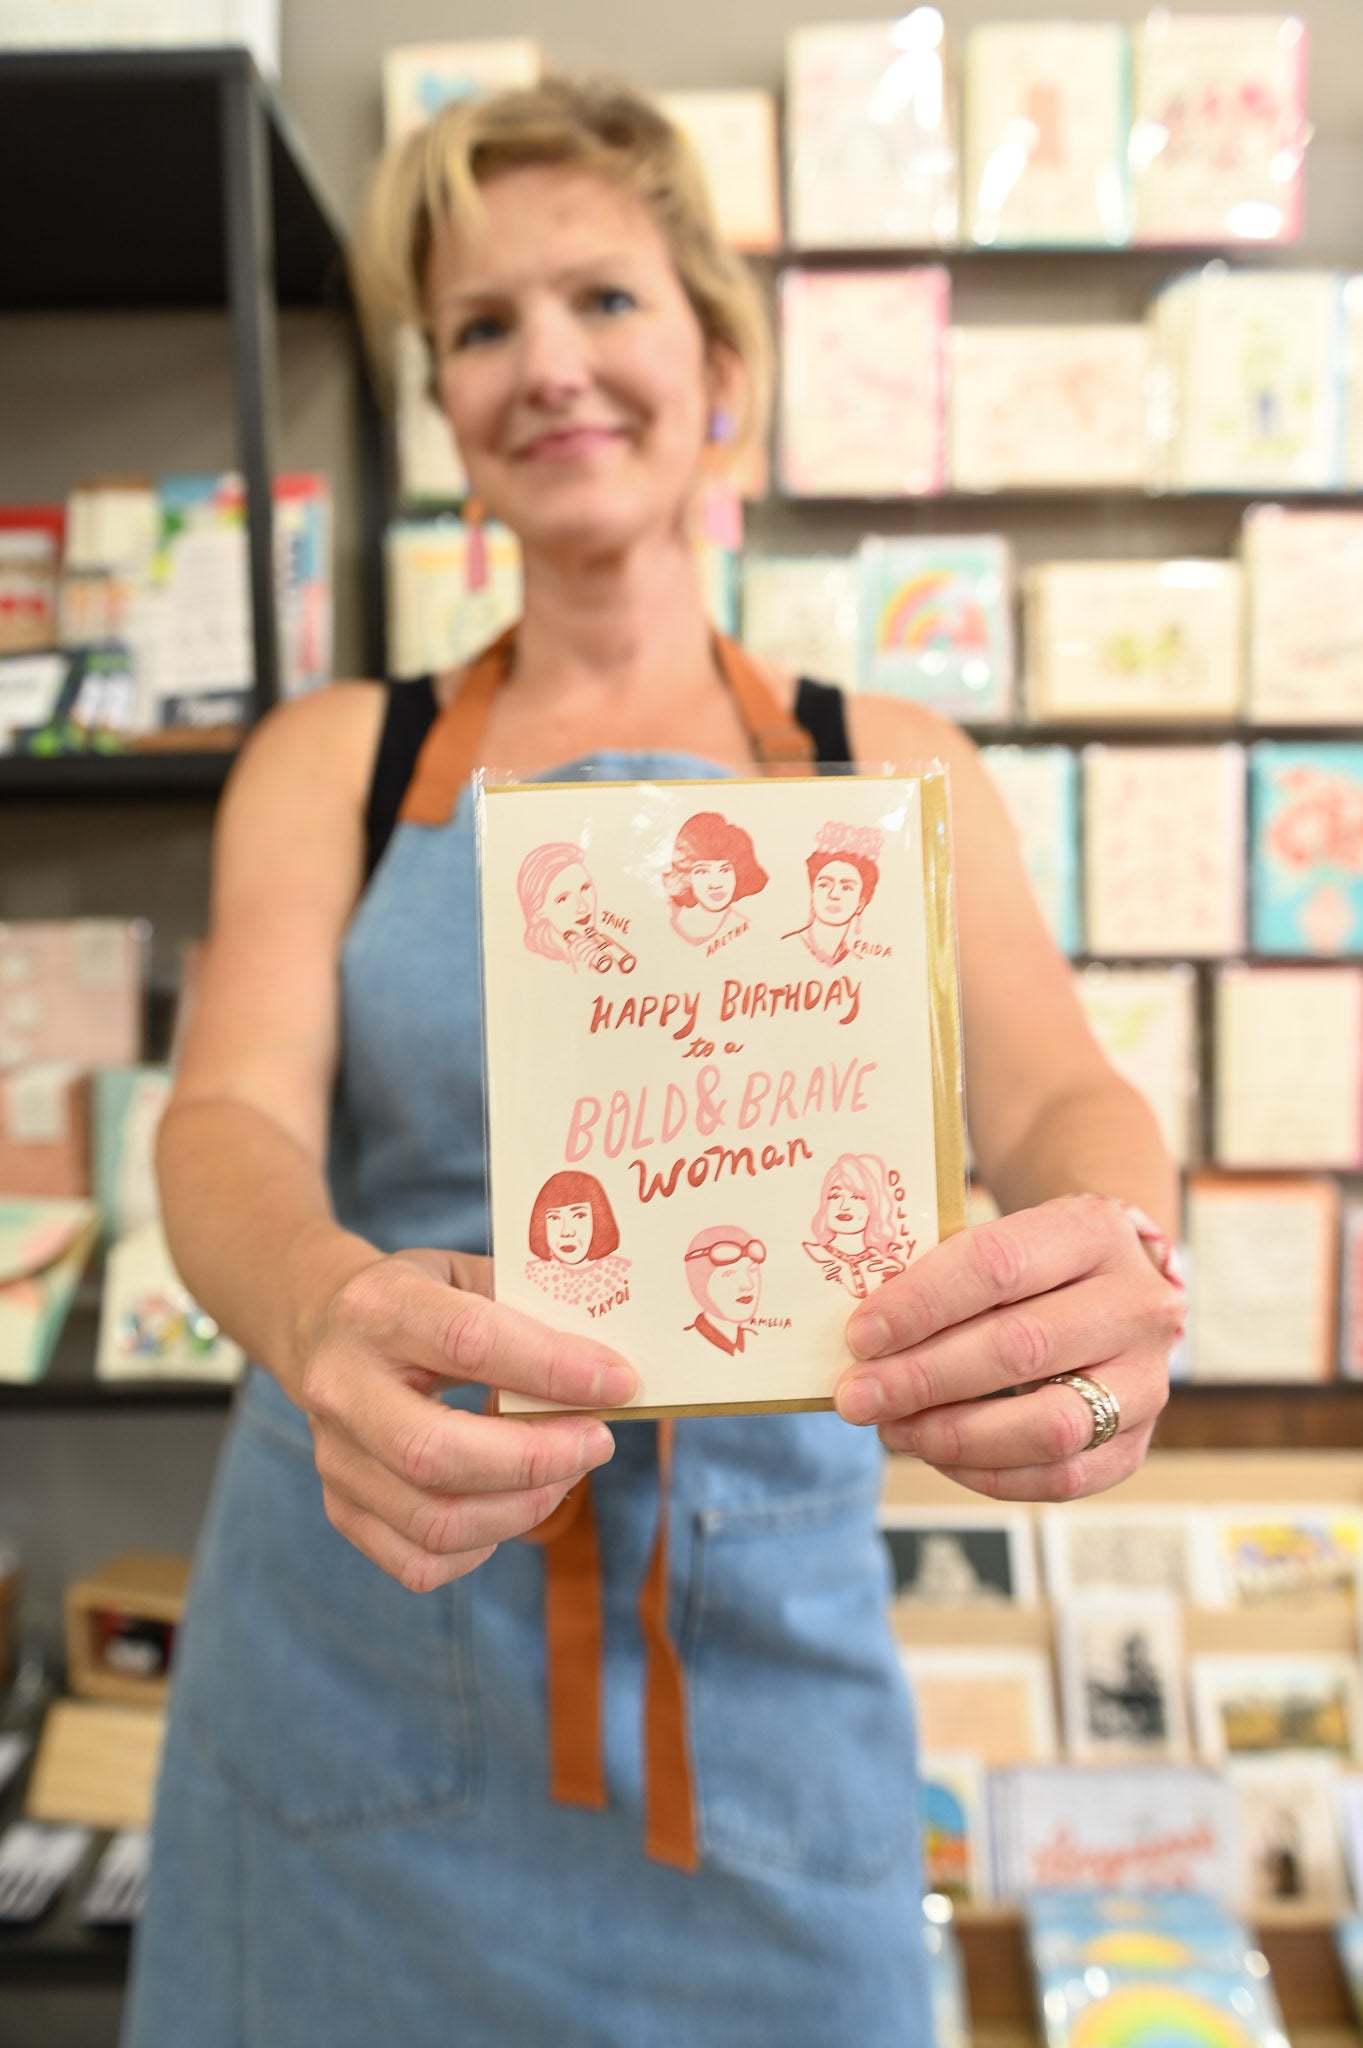 JANE
ARETHA
FRIDA
HAPPY BIRTHDAY
to a
BOLD & BRAVE
woman
YAYOI
AMELIA
DOLLY